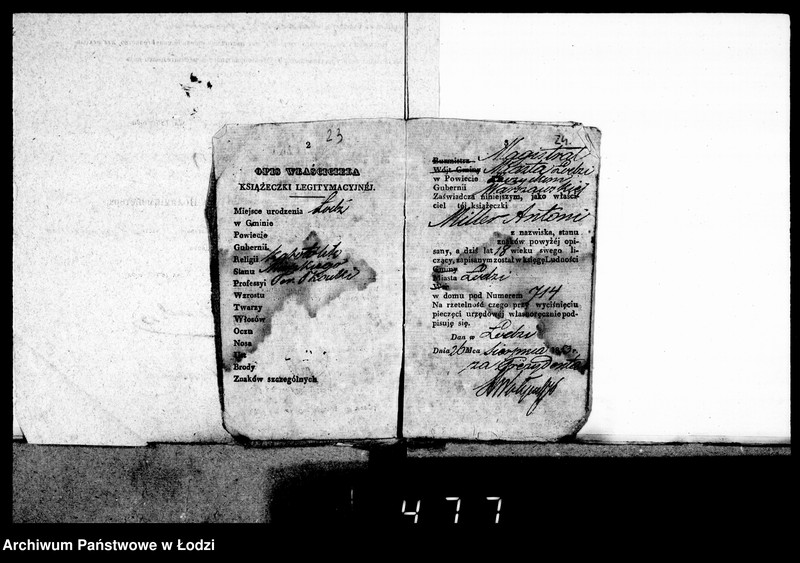 2 23
OPIS WŁAŚCICIELA
KSIĄŻECZKI LEGITYMACYJNÉJ.
Miejsce urodzenia Łódź
w Gminie
Powiecie
Gubernii
Religii Katolik
Stanu
Professyi
Wzrostu
Twarzy
Włosów
Oczu
Nosa
Brody
Znaków szczególnych
24.
Burmistrz Magistrat
Wójt Gminy Miasta Łodzi
w Powiecie
Gubernii Warszawskiej
Zaświadcza niniejszym, jako właści-
ciel téj książeczki
Miller Antoni
z nazwiska, stanu
znaków powyżéj opi-
sany, a dziś lat 18 wieku swego li-
czący, zapisanym został w księgę Ludności
Gminy
Miasta Łodzi
Wsi
w domu pod Numerem 714
Na rzetelność czego przy wyciśnięciu
pieczęci urzędowéj własnoręcznie pod-
pisuję się.
Dan w Łodzi
Dnia 26 Mca Sierpnia
za Prezydenta
477
Archiwum Państwowe w Łodzi